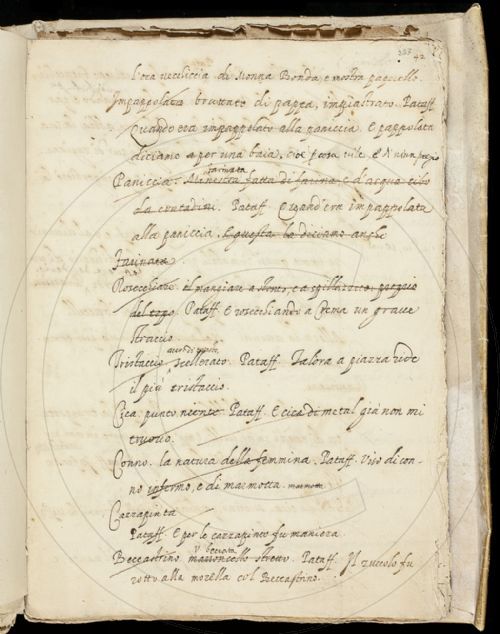 42
l'ora ueccliccia di Monna Bonda e nostra
Impappolata brutato di pappa, impiastrato. Pataff.
Quando era impappolato alla paniccia. E pappolata
diciamo a per una baia, cioè cosa uile
farinata
Paniccia. Minestra fatta di farina, e d'acqua cibo
da contadini. Pataff. Quand'era impappolata
alla paniccia. E questa la diciamo anche
farinata
Rosecchiare il mangiare a stento, e a spilluzzico proprio
del topo. Pataff. E rosecchiando a Crema un graue
straccio
Tristaccio, scellerato. Pataff. Talora a piazza uide
il piú tristaccio.
Cica punto niente Pataff. E cica di metal giá non mi
truouo.
Conno. la natura della femmina. Pataff. Viso di con-
no infermo, e di marmotta.
Cazzapinta
Pataff. E per le cazzapinte fu maniera
V. beccata
Beccastrino marroncello stretto. Pataff. Il zuccolo fu
rotto alla morella col Beccastrino.